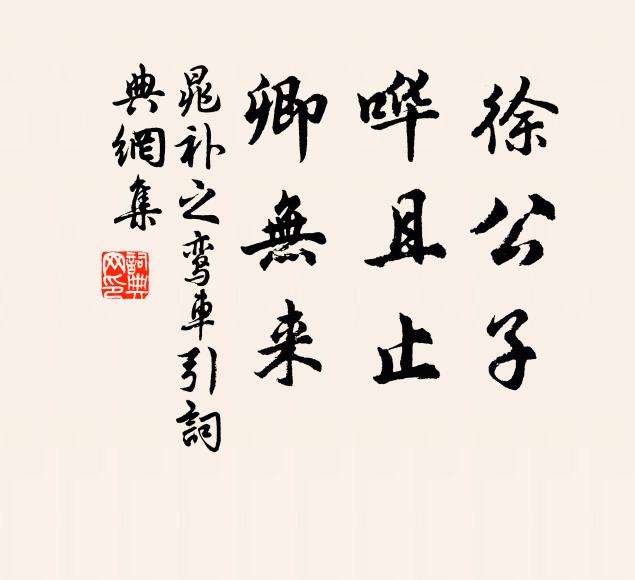 徐公子
哗且止
卿無来
晁补之鸾車引詞
典網集
詞典网印